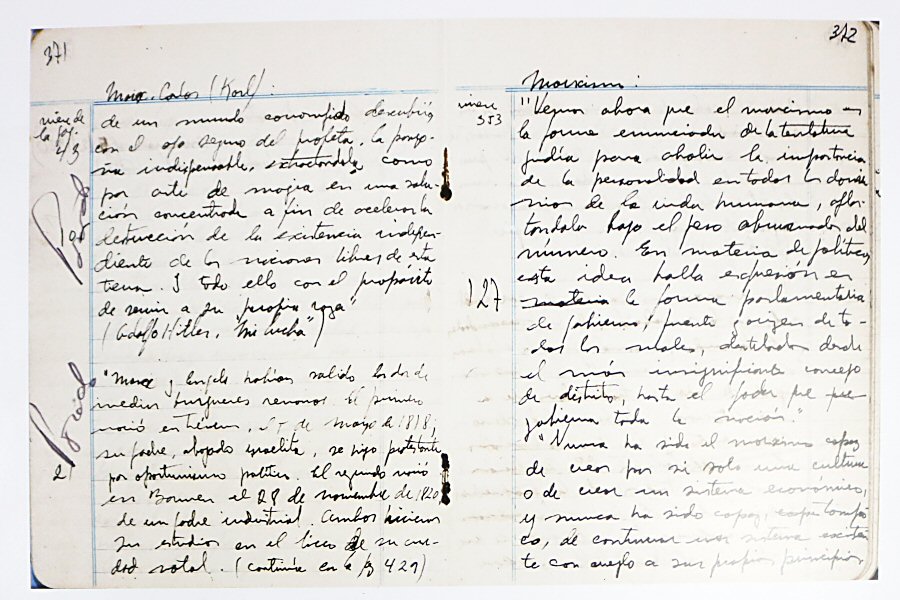 371
Marx, Carlos (Karl):
viene de
la pag.
43
de un mundo corrompido descubrió
con el ojo seguro del profeta, la ponzo-
ña indispensable, extractandola, como
por arte de magia en una solu-
ción concentrada a fin de acelerar la
destrucción de la existencia indepen-
diente de las naciones libres de esta
tierra. I todo ello con el propósito
de servir a su propia raza"
(Adolfo Hitler, "Mi lucha")
"Marx y Engels habían salido los dos de
medios burgueses renanos. El primero
nació en Treveris, 5 de Mayo de 1818;
su padre, abogado israelita, se hizo protestante
por oportunismo político. El segundo nació
en Barmen el 28 de noviembre de 1820
de un padre industrial. Ambos hicieron
sus estudios en el liceo de su ciu-
dad natal. (continúa en la pg 429)
2
372
Marxismo:
viene
353
"Vemos ahora que el marxismo es
la forma enunciada de la tentativa
judía para abolir la importancia
de la personalidad en todos los domi-
nios de la vida humana,
bajo el peso abrumador del
número. En materia de política,
esta idea halla expresión en
materia la forma parlamentaria
de gobierno, fuente y origen de to-
dos los males, destilados desde
el más insignificante concejo
de distrito, hasta el poder que
gobierna toda la nación."
127
"Nunca ha sido el marxismo capaz
de crear por si solo una cultura
o de crear un sistema económico,
y nunca ha sido capaz,
de continuar un sistema
te con arreglo a sus propios principios